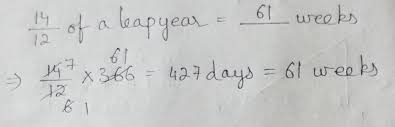 14/12 of a leapyear = 61 weeks
⇒ 14 7/12 6 × 366 61 1 = 427 days = 61 weeks